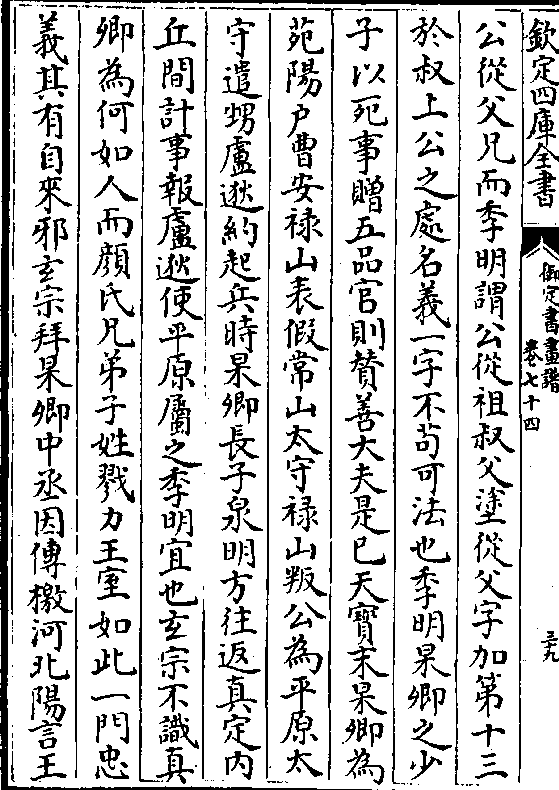 欽定四庫全書
御定書畫譜
卷七十四
三九
公從父兄而季明謂公從祖叔父塗從父字加第十三
於叔上公之處名義一字不苟可法也季明杲卿之少
子以死事贈五品官則贊善大夫是已天寶末杲卿為
范陽户曹安禄山表假常山太守禄山叛公為平原太
守遣甥盧逖約起兵時杲卿長子泉明方往返真定内
丘間計事報盧逖使平原屬之季明宜也玄宗不識真
卿為何如人而顔氏兄弟子姓戮力王室如此一門忠
義其有自來邪玄宗拜杲卿中丞因傳檄河北陽言王